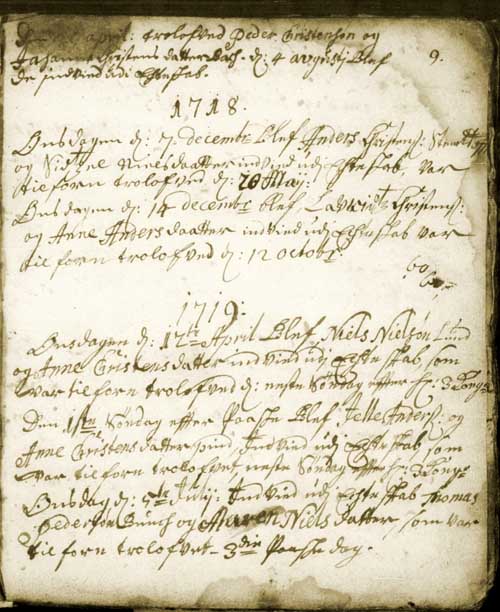 april: trolofved Peder Christensøn og
Christens datter d: 4 augusti blef
de indvied udi Echteskab.
9.
1718.
Onsdagen d: 7 decembr blef Anders Christens:
og Nielsdaatter indvied udi Echteskab var
til forn trolofved d: 20 Maij:
Onsdagen d: 14 decembr blef Lauridz Christens:
og Anne Anders daatter indvied udj Echteskab var
til forn trolofved d: 12 octobr
1719:
Onsdagen d: 12te April blef Niels Nielsøn Lund
og Anne Christens datter indvied udj Echte skab som
var til forn trolofved d: neste Søndag efter
Den 1ste Søndag effter Paaske blef Anders: og
Anne Christens datter indvied udj Echteskab som
var til forn trolofvet neste Søndag effter
Onsdag d: Julij: indvied udj Echte skab Thomas
Pedersøn Bunch og Maren Niels datter, som var
til forn trolofvet 3die Paaske dag.